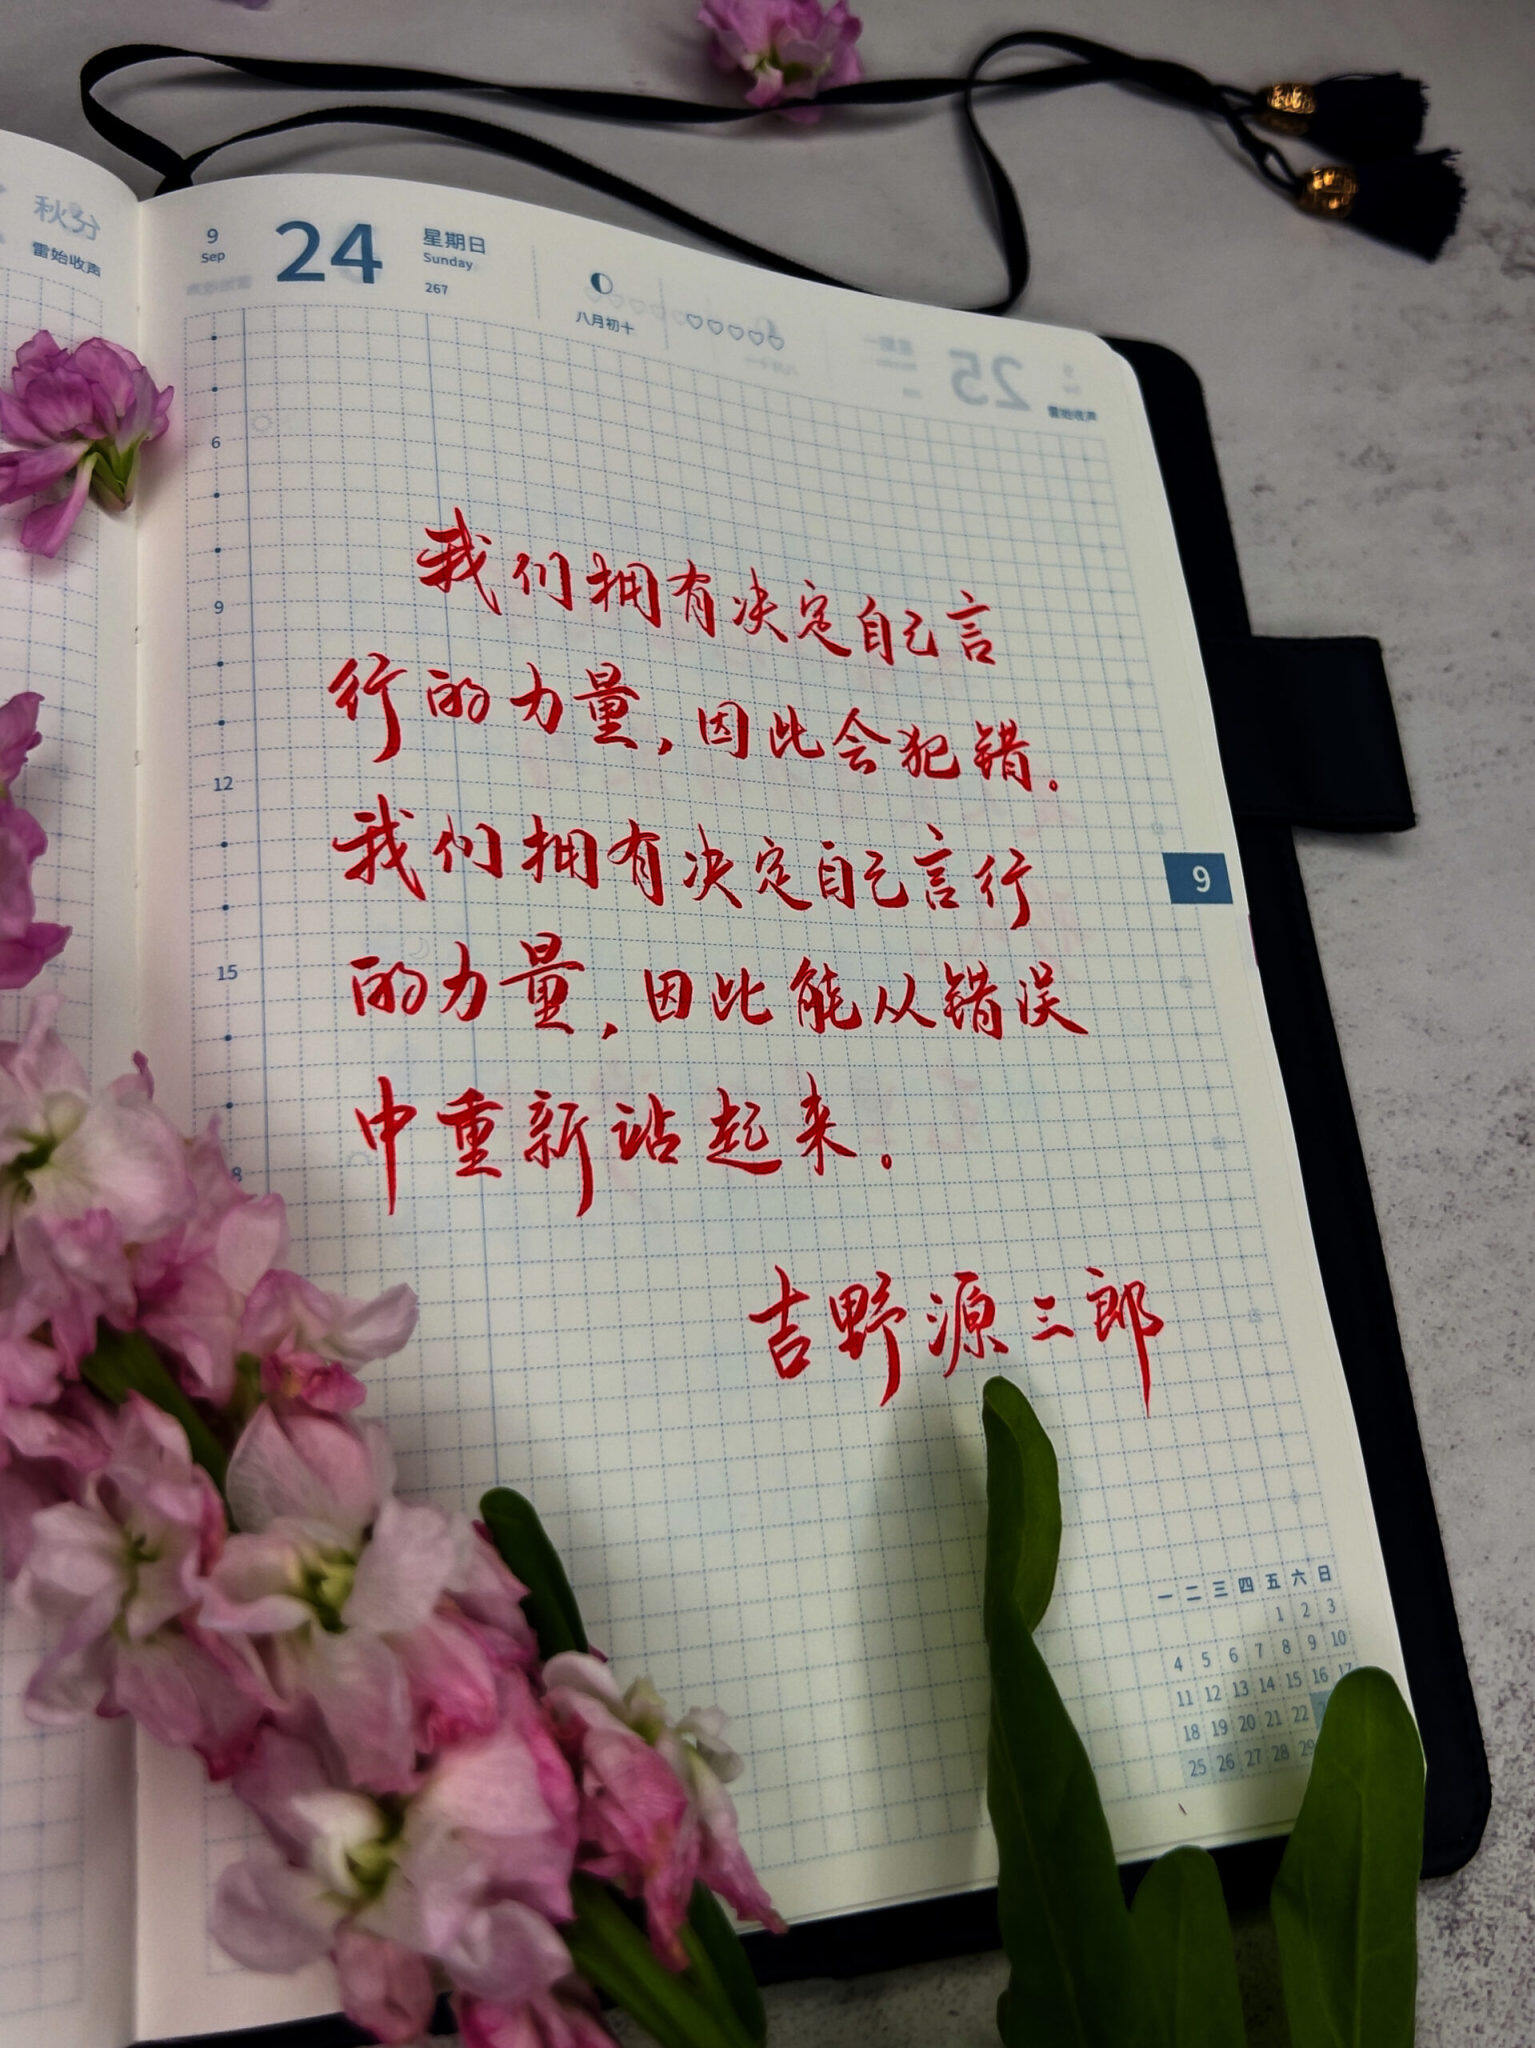 秋分
雷始收声
9
Sep
24
星期日
Sunday
267
八月初十
25
雷始收声
6
9
12
15
8
我们拥有决定自己言
行的力量，因此会犯错。
我们拥有决定自己言行
的力量，因此能从错误
中重新站起来。
吉野源三郎
9
一 二 三 四 五 六 日
1 2 3
4 5 6 7 8 9 10
11 12 13 14 15 16 17
18 19 20 21 22
25 26 27 28 29